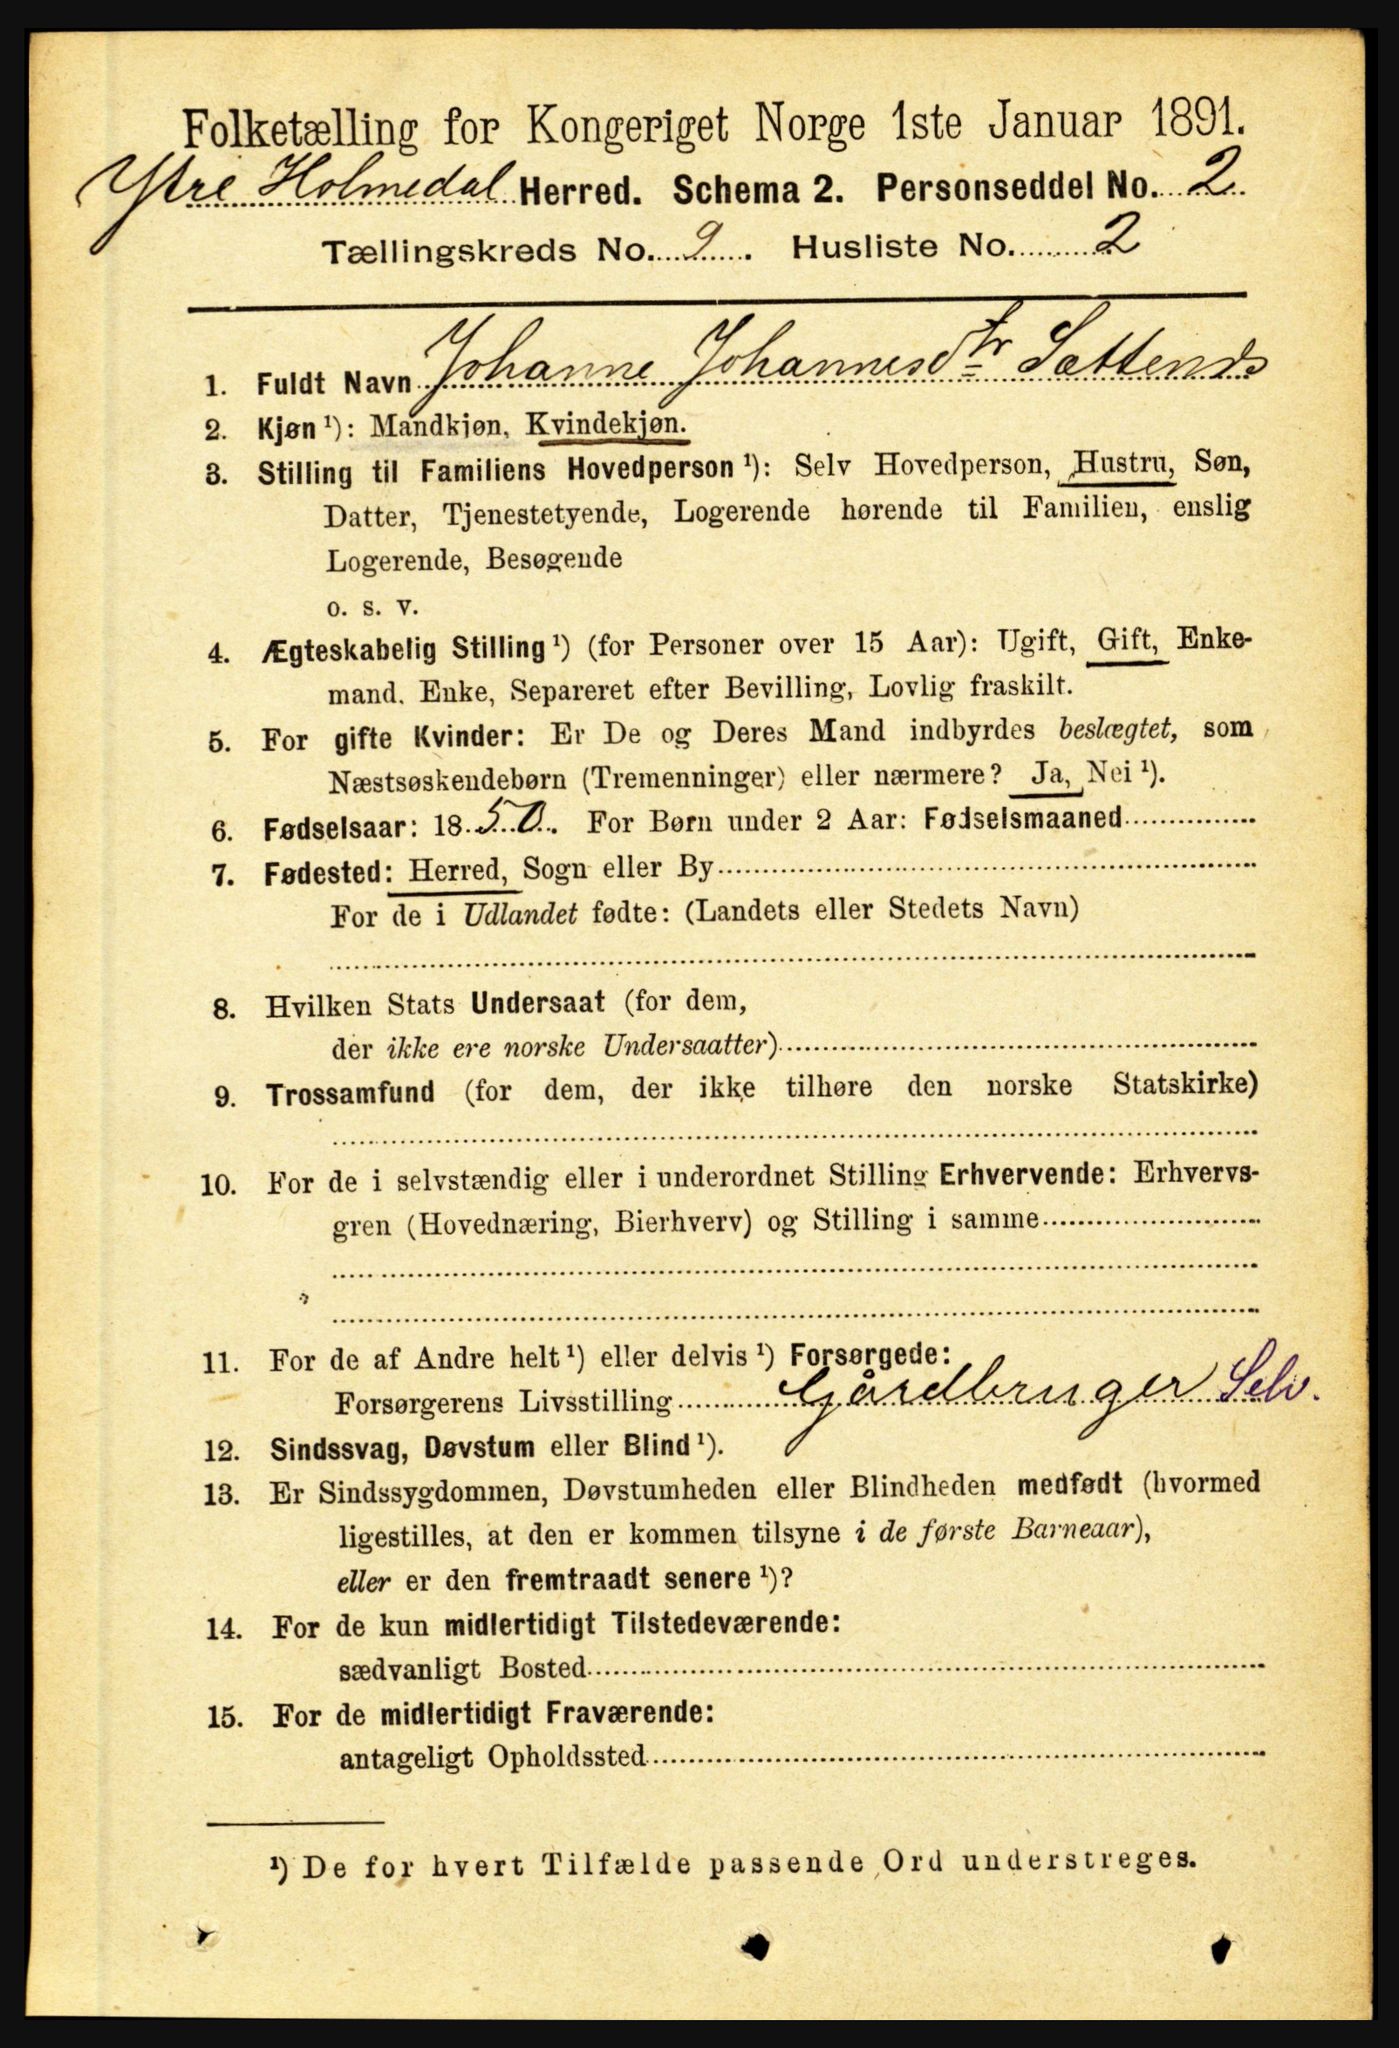 Folketælling for Kongeriget Norge 1ste Januar 1891.
Ytre Holmedal Herred. Schema 2. Personseddel No. 2.
Tællingskreds No. 9. Husliste No. 2
1. Fuldt Navn Johanne Johannesdtr
2. Kjøn¹): Mandkjøn, Kvindekjøn.
3. Stilling til Familiens Hovedperson¹): Selv Hovedperson, Hustru, Søn,
Datter, Tjenestetyende, Logerende hørende til Familien, enslig
Logerende, Besøgende
o. s. v.
4. Ægteskabelig Stilling¹) (for Personer over 15 Aar): Ugift, Gift, Enke-
mand, Enke, Separeret efter Bevilling, Lovlig fraskilt.
5. For gifte Kvinder: Er De og Deres Mand indbyrdes beslægtet, som
Næstsøskendebørn (Tremenninger) eller nærmere? Ja, Nei¹).
6. Fødselsaar: 1850. For Børn under 2 Aar: Fødselsmaaned
7. Fødested: Herred, Sogn eller By
For de i Udlandet fødte: (Landets eller Stedets Navn)
8. Hvilken Stats Undersaat (for dem,
der ikke ere norske Undersaatter)
9. Trossamfund (for dem, der ikke tilhøre den norske Statskirke)
10. For de i selvstændig eller i underordnet Stilling Erhvervende: Erhvervs-
gren (Hovednæring, Bierhverv) og Stilling i samme
11. For de af Andre helt¹) eller delvis¹) Forsørgede:
Forsørgerens Livsstilling Gårdbruger Selv.
12. Sindssvag, Døvstum eller Blind¹).
13. Er Sindssygdommen, Døvstumheden eller Blindheden medfødt (hvormed
ligestilles, at den er kommen tilsyne i de første Barneaar),
eller er den fremtraadt senere¹)?
14. For de kun midlertidigt Tilstedeværende:
sædvanligt Bosted
15. For de midlertidigt Fraværende:
antageligt Opholdssted
¹) De for hvert Tilfælde passende Ord understreges.